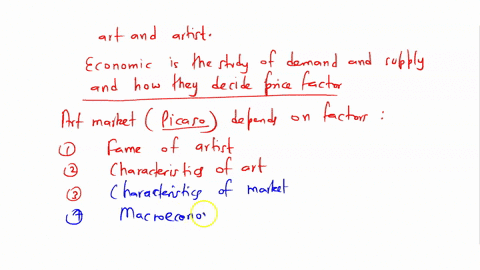 art and artist.
Economic is the study of demand and supply
and how they decide price factor
Art market (Picaso) depends on factors :
① Fame of artist
② Characteristics of art
③ Characteristics of market
④ Macroecono